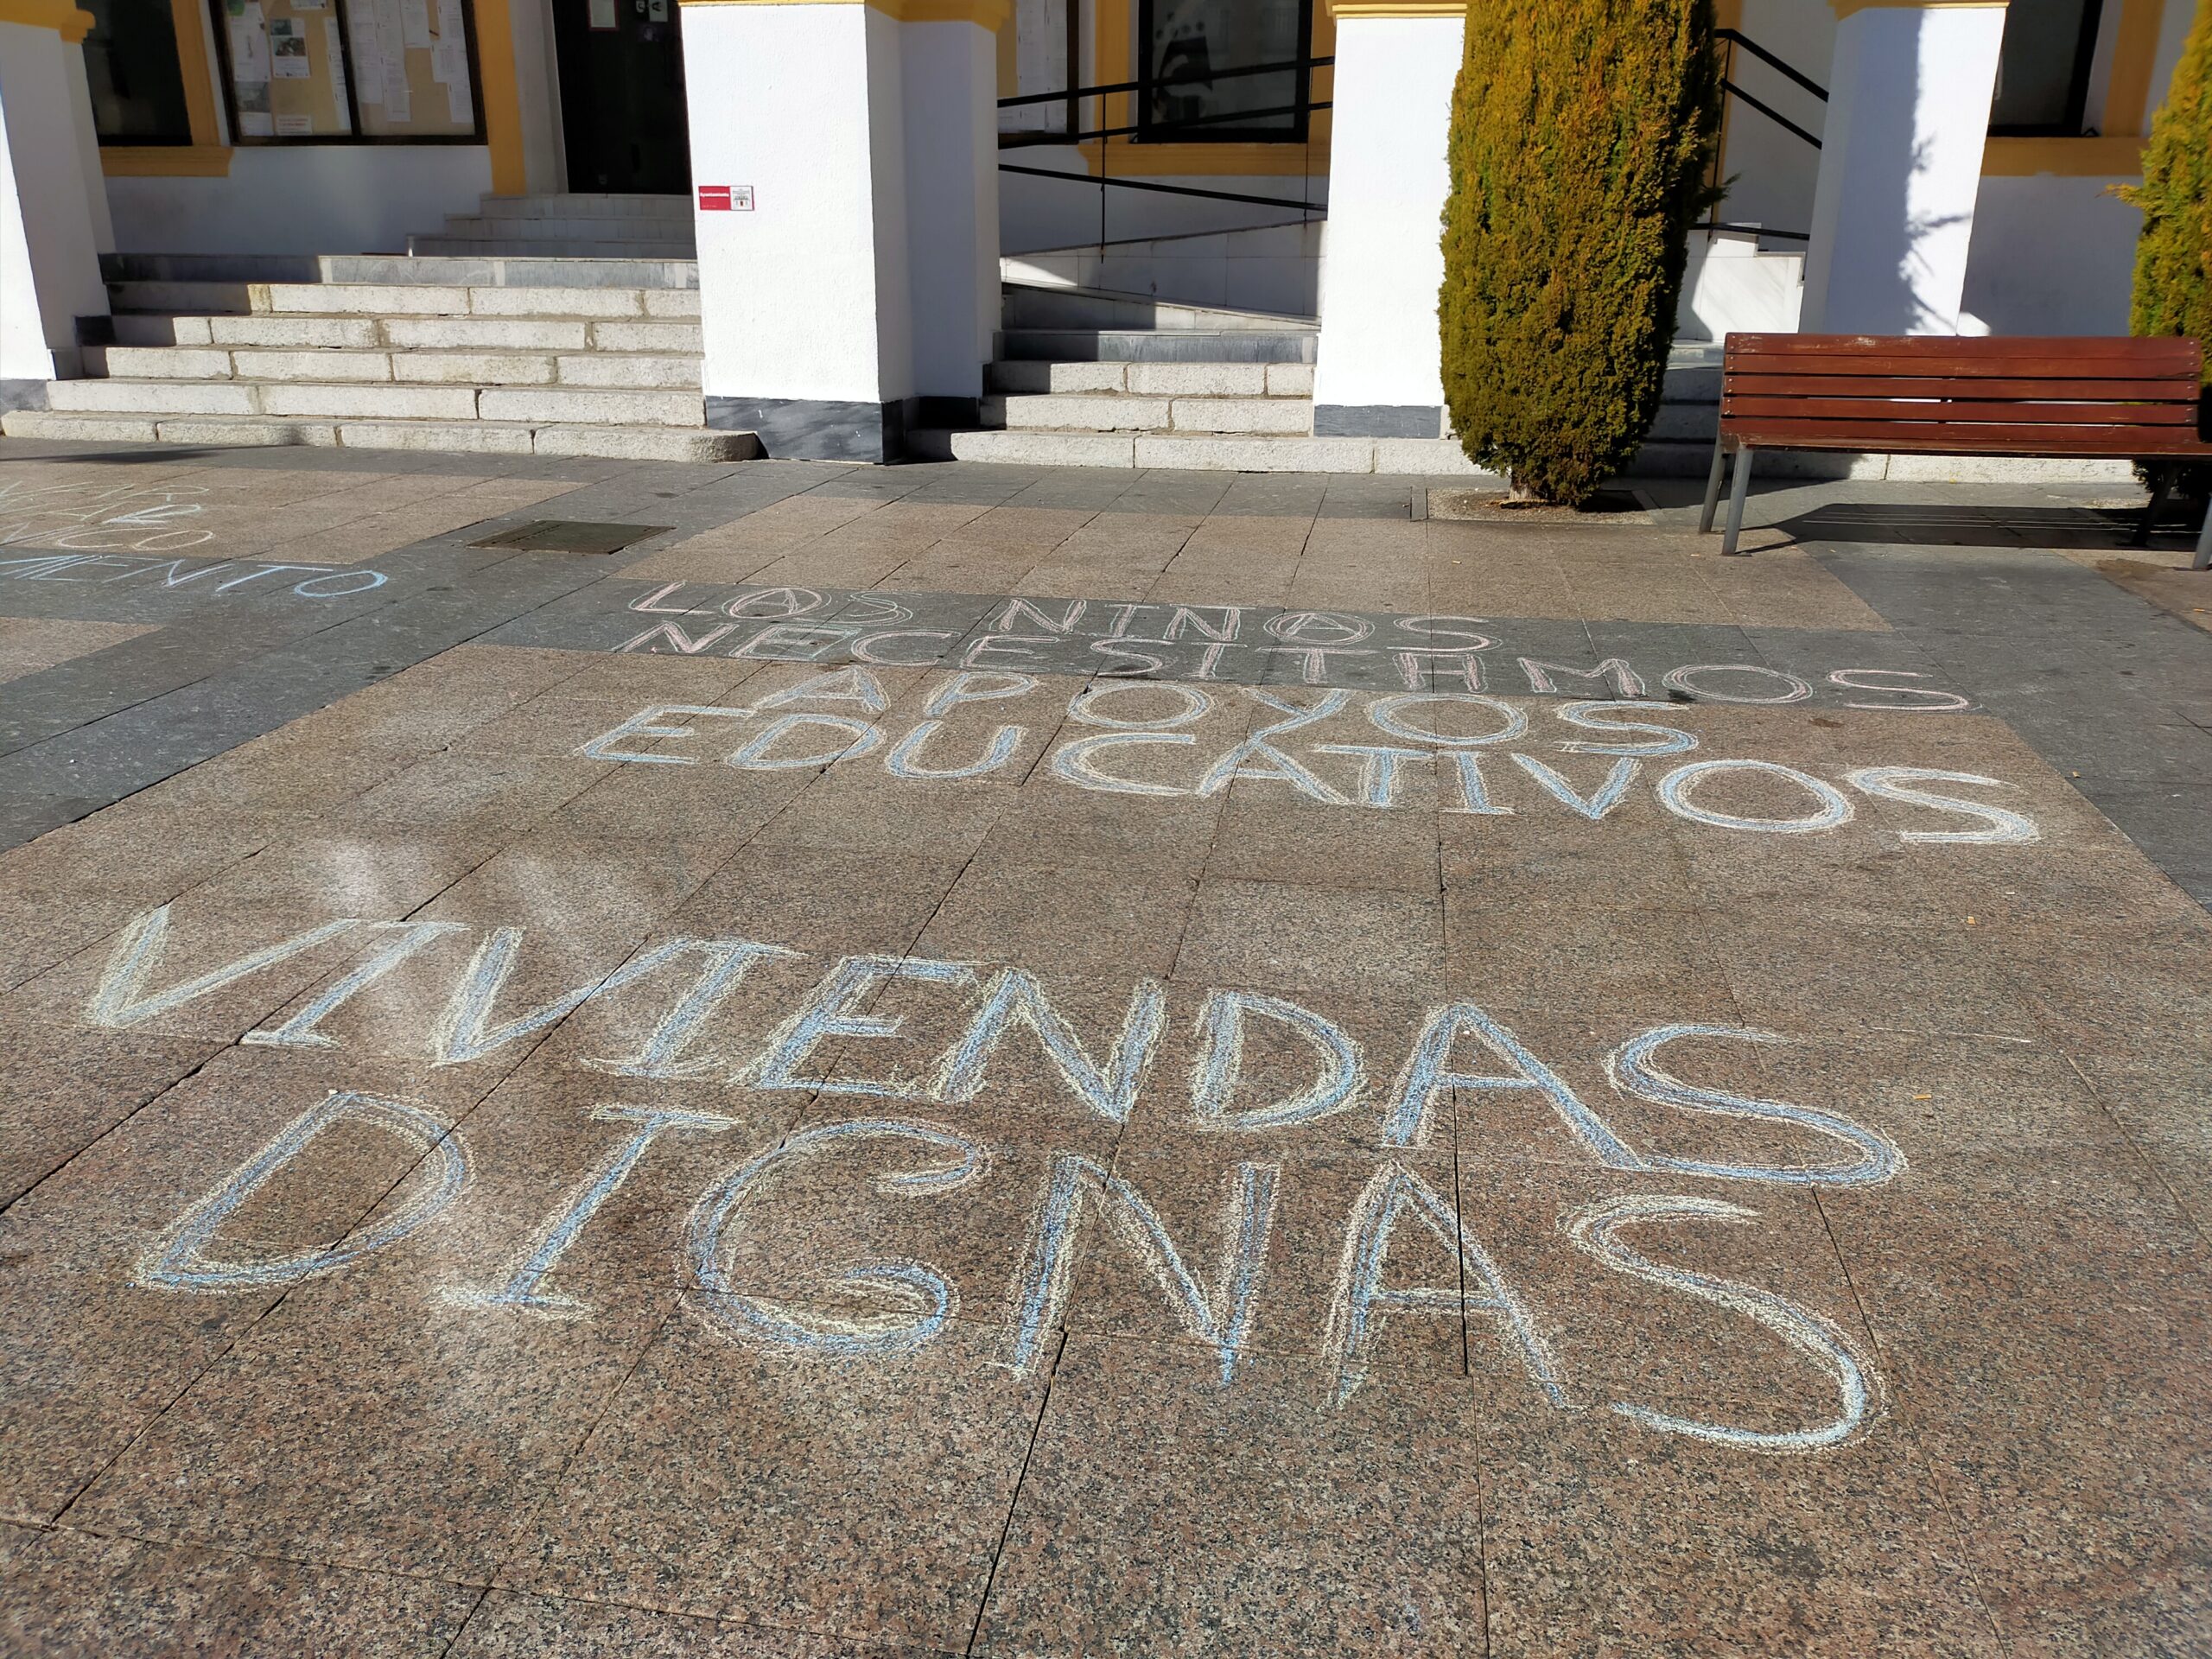 Ayuntamiento
MIENTO
LOS NIÑOS
NECESITAMOS
APOYOS
EDUCATIVOS
VIVIENDAS
DIGNAS